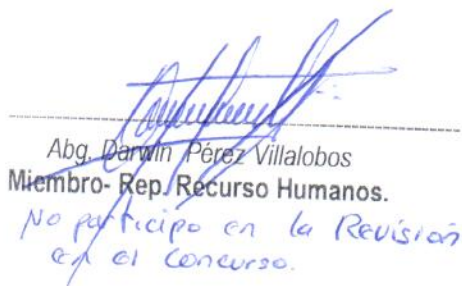 Abg. Darwin Pérez Villalobos
Miembro- Rep. Recurso Humanos.
No participo en la Revisión
en el Concurso.